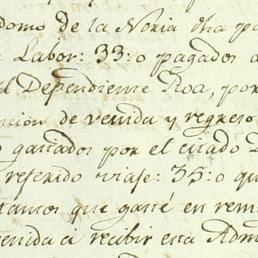 domo de la Noria otra pa
Labor: 33: o pagados a
l Dependiente Roa, por
acion de venida y regreso
gastados por el citado
referido viaje: 35: o qu
tantos que gasté en rem
enida á recibir esta Adm